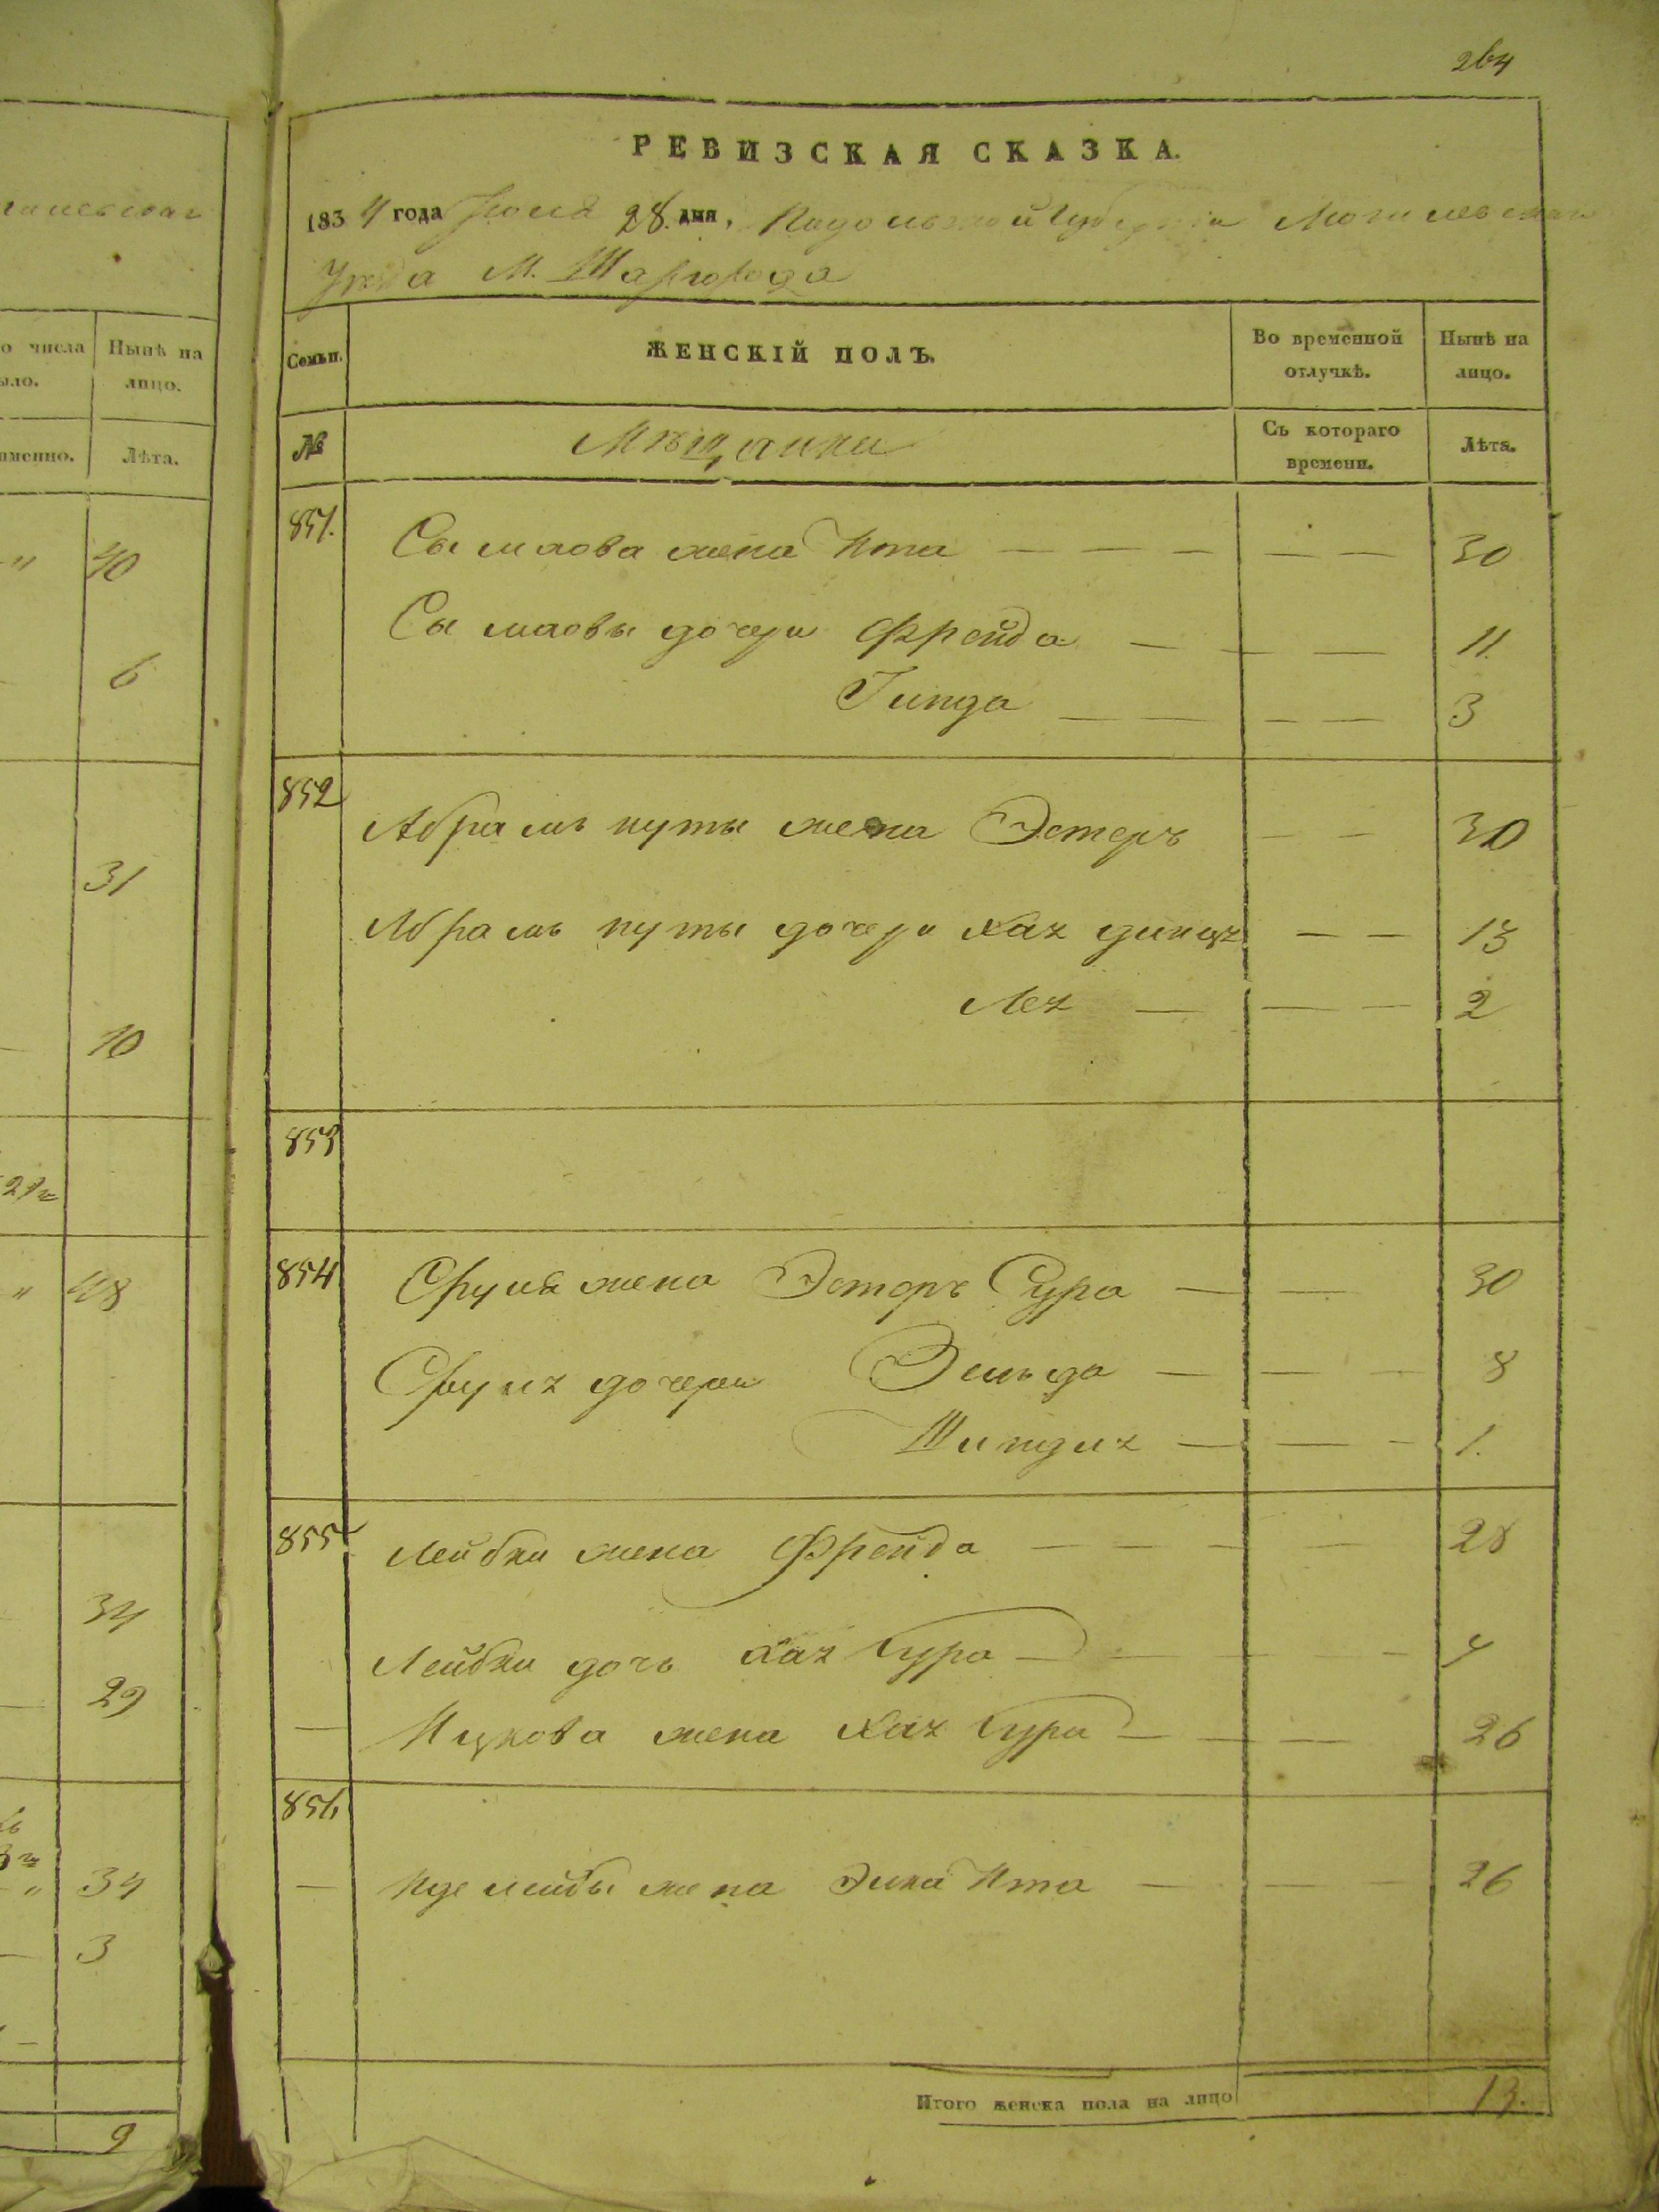 264
РЕВИЗСКАЯ СКАЗКА.
1834 года Июля 28 дня, Подольской Губернии Могилевскаго
Уезда М. Шаргорода
о числа
ыло.
Нынѣ на
лицо.
именно.
Лѣта.
Семьи.
ЖЕНСКІЙ ПОЛЪ.
Во временной
отлучкѣ.
Нынѣ на
лицо.
№
Мѣщанки
Съ котораго
времени.
Лѣта.
851.
Сымаова жена Ита — — — — — 30
Сымаовы дочери Фрейда — — — 11.
Гинда — — — — 3
852
Абрамъ нуты жена Эстеръ — — 30
Абрамъ нуты дочери Хая — — 13
Лея — — — 2
853
854
Сруля жена Эстеръ Сура — — 30
Сруля дочери Эльда — — — 8
Шиндля — — — 1.
855
Лейбки жена Фрейда — — — — 28
Лейбки дочь Хая Сура — — — 4
— Ицкова жена Хая Сура — — — 26
856
— Иделейбы жена Элка Ита — — — 26
Итого женска пола на лицо 13.
40
6
31
10
48
34
29
34
3
9